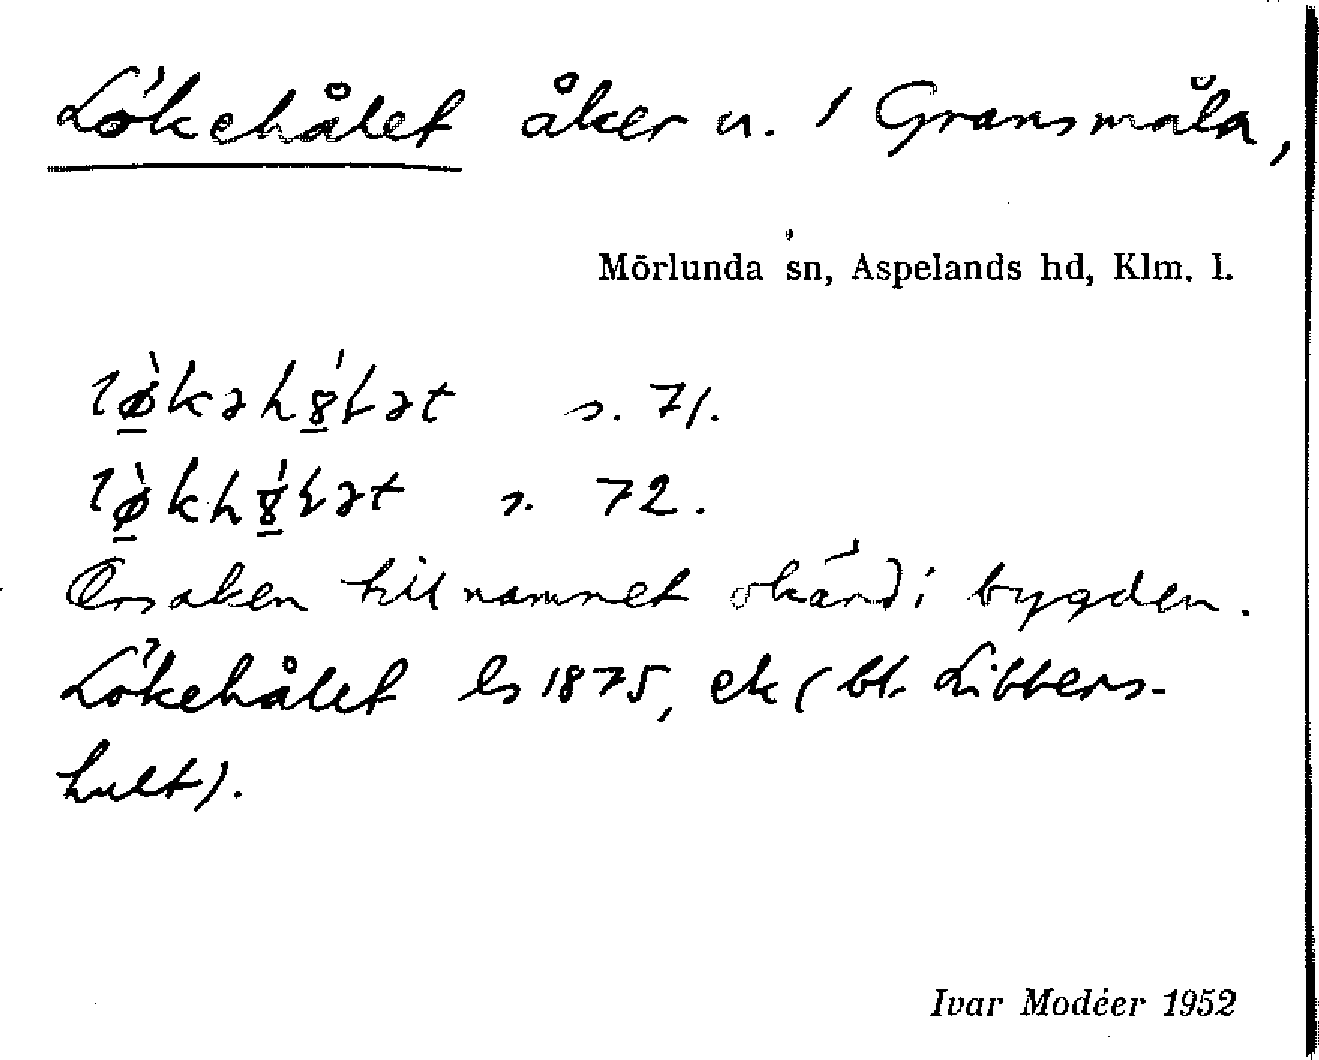 Lökehålet åker u. 1 Gransmåla,
Mörlunda sn, Aspelands hd, Klm. l.
lø̀kəhȣ́ɫət s. 71.
lø̀khȣ́ɫət s. 72.
Orsaken till namnet okänd i bygden.
Lökehålet ls 1875, ek (bl. Libbers-
hult).
Ivar Modéer 1952